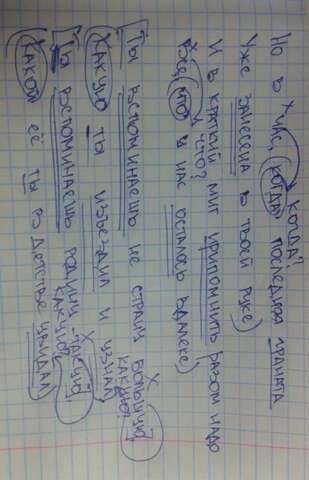 х когда?
Но в час, (когда) последняя граната
Уже занесена в твоей руке)
И в краткий миг припомнить разом надо
что?
Всё, (что) у нас осталось вдалеке)
х
[Ты вспоминаешь не страну большую,
какую?
(Какую) ты изъездил и узнал)
х
[Ты вспоминаешь родину - такую,
какую?
(Какой) её ты в детстве увидал)